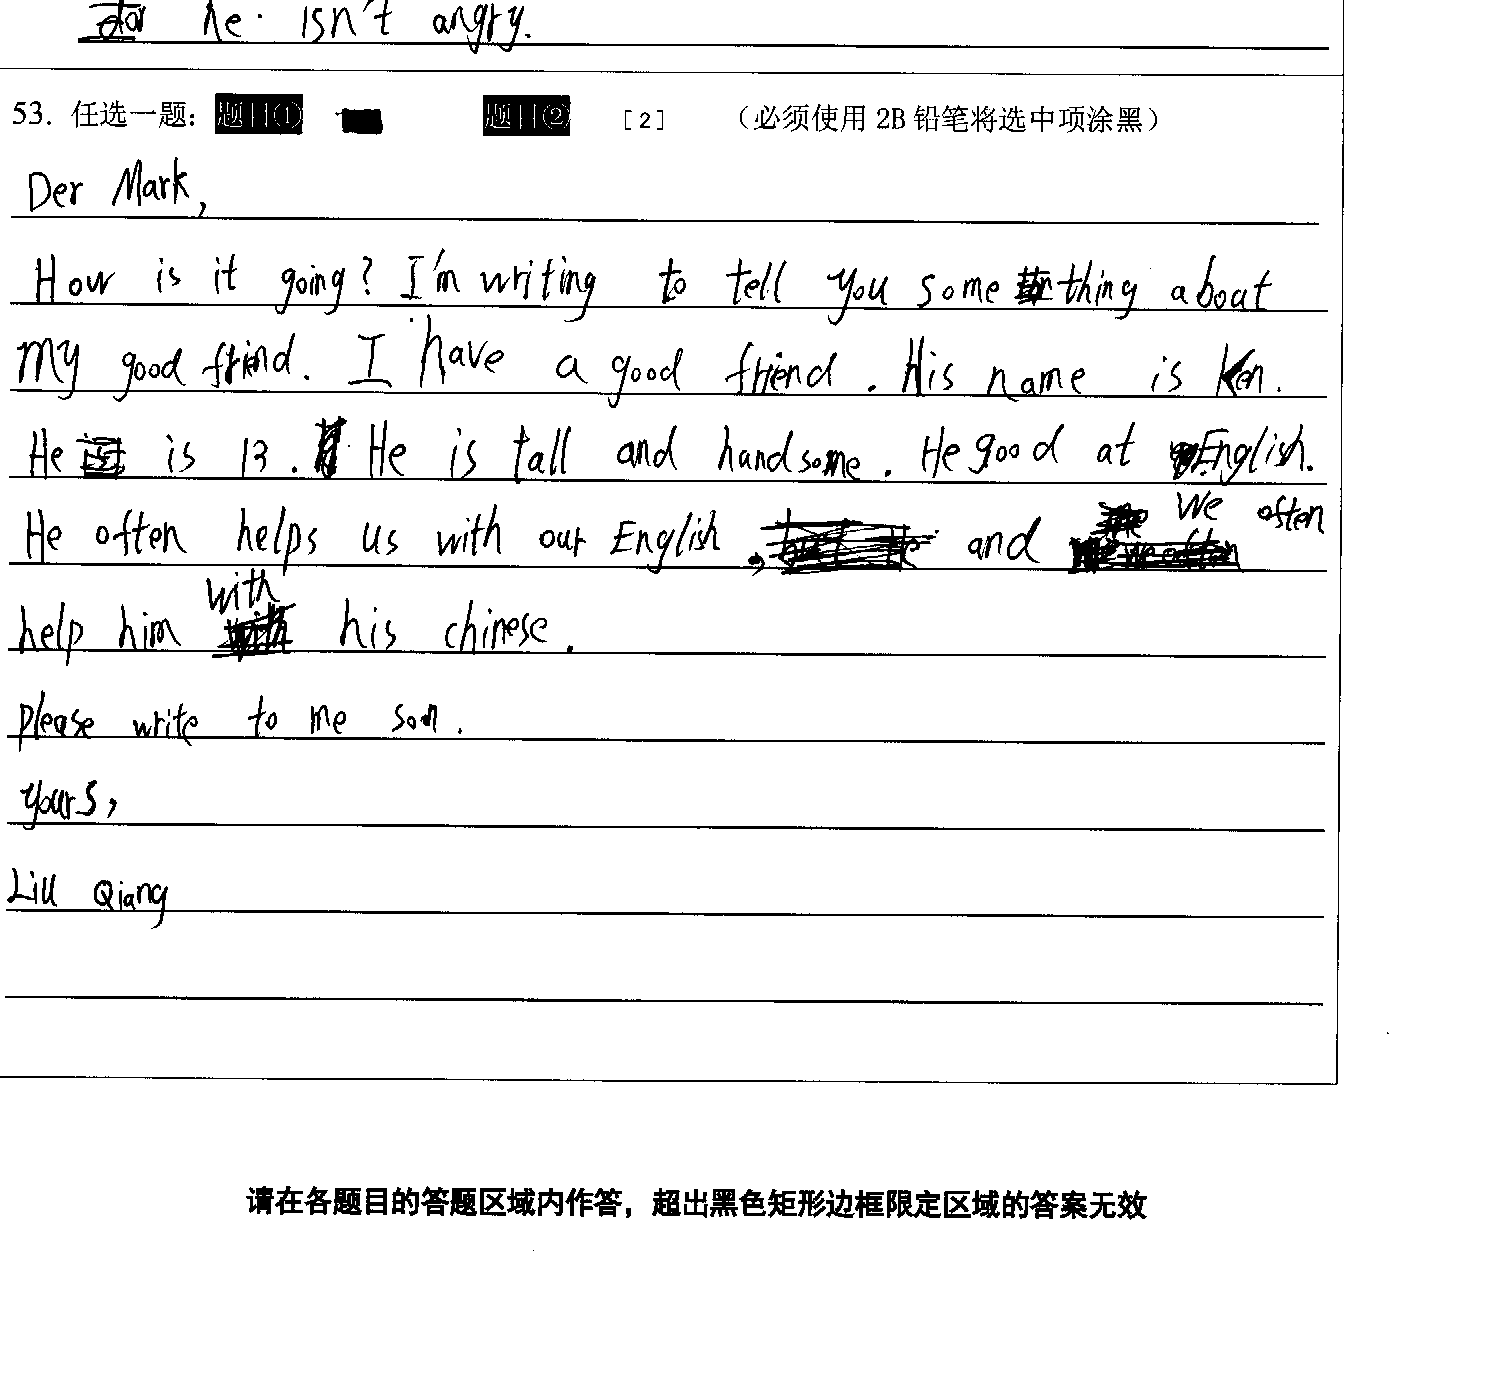 he. isn't angry.
53. 任选一题： 题目① 题目② [2] （必须使用 2B 铅笔将选中项涂黑）
Der Mark,
How is it going? I'm writing to tell you some thing about
my good frind. I have a good friend. His name is Ken.
He is 13. He is tall and handsome. He good at English.
He often helps us with our English, and We often
help him with his chinese.
please write to me soon.
yours,
Liu Qiang
请在各题目的答题区域内作答，超出黑色矩形边框限定区域的答案无效